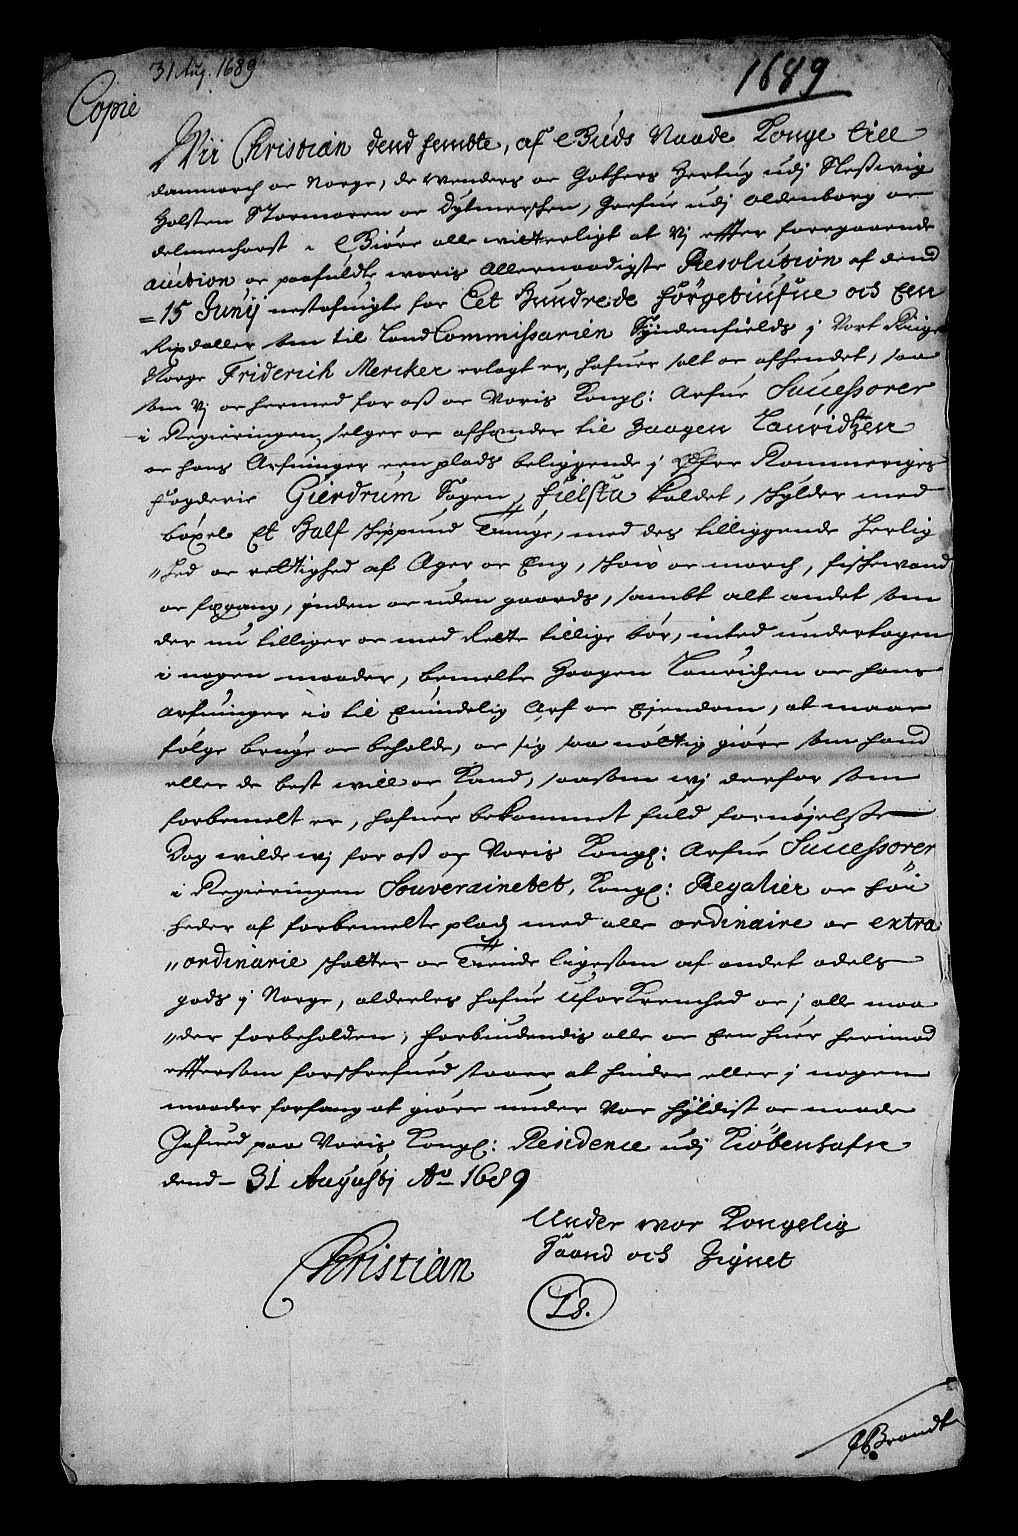 31 Aug. 1689
1689
Copie
Wii Christian dend femte, af Guds Naade Konge till
danmarch oc Norge, de Wenders oc Gothers Hertug udj Sleßwig
Holsten Stormaren oc Dytmerschen, Grefue udj oldenborg oc
delmenhorst: Giöre alle witterligt at Vj effter foregaaende
auction oc paafuldte woris Allernaadigste Resolution af dend
=15 Junij nestafuigte for Eet Hundrede Förgetiufue och Een
Rixdaller som til Land Commissarien Syndenfields j Vort Riige
Norge Friderich Mercker erlagt er, hafuer solt oc afhendet, saa
som Vj oc hermed for oß oc Voris Kongl: Arfue Successorer
i Regieringen, selger oc afhænder til Haagen Lauridtzen
oc hans Arfuinger een plads beliggende j Øfre Rommeriges
fogderie Gierdrum Sogen, Fielsta kaldet, skylder med
böxel Et Half skippund Tunge, med des tilliggende Herlig
"hed oc rettighed af Ager oc Eng, skow oc march, fiskewand
oc fægang, inden oc uden gaards, sambt alt andet som
der nu tilliger oc med Rette tillige bör, inted undertagen
i nogen maader, bemelte Haagen Lauridzen oc hans
arfuinger til Euindelig Arf oc Ejendom, at maae
fölge bruge oc beholde, oc sig saa nöttig giöre som hand
eller de best will oc Kand, saasom wj derfor som
forbemelt er, hafuer bekommet fuld fornöjelse
Dog wilde wj for oß oc Voris Kongl: Arfue Successorer
i Regieringen Souverainetet, Kongl: Regalier oc Höi
heder af forbemelte plads med alle ordinaire oc extra
"ordinarie skatter oc Tiende ligesom af andet adels
gods j Norge, alderles hafue uforkrencked oc j alle maa
"der forbeholden; forbiudendis alle oc Een huer herimod
eftersom forschrefued staaer at hindre eller j nogen
maader forfang at giöre under Vor hyldist oc naade
Gifued paa Voris Kongl: Residence udj Kiöbenhafn
dend 31 Augustj Ao 1689
Under wor Kongelig
Haand och Zignet
Christian
L S.
Brandt